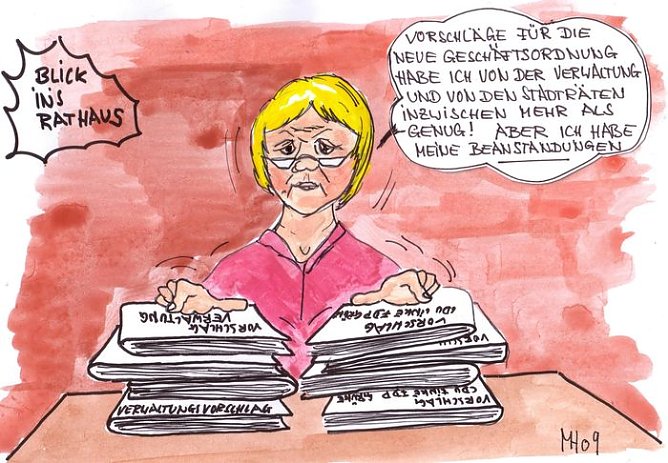 BLICK
INS
RATHAUS
VORSCHLÄGE FÜR DIE
NEUE GESCHÄFTSORDNUNG
HABE ICH VON DER VERWALTUNG
UND VON DEN STADTRÄTEN
INZWISCHEN MEHR ALS
GENUG! ABER ICH HABE
MEINE BEANSTANDUNGEN
VORSCHLAG
VERWALTUNG
VERWALTUNGSVORSCHLAG
VORSCHLAG
CDU LINKE FDP GRÜN
VORSCHL
VORSCHLAG
CDU LINKE FDP GRÜNE
MH09